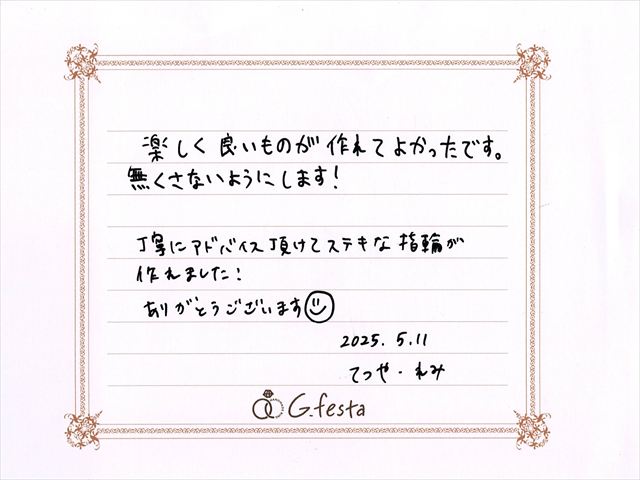 楽しく良いものが作れてよかったです。
無くさないようにします!
丁寧にアドバイス頂けてステキな指輪が
作れました!
ありがとうございます
2025.5.11
てつや・れみ
G.festa